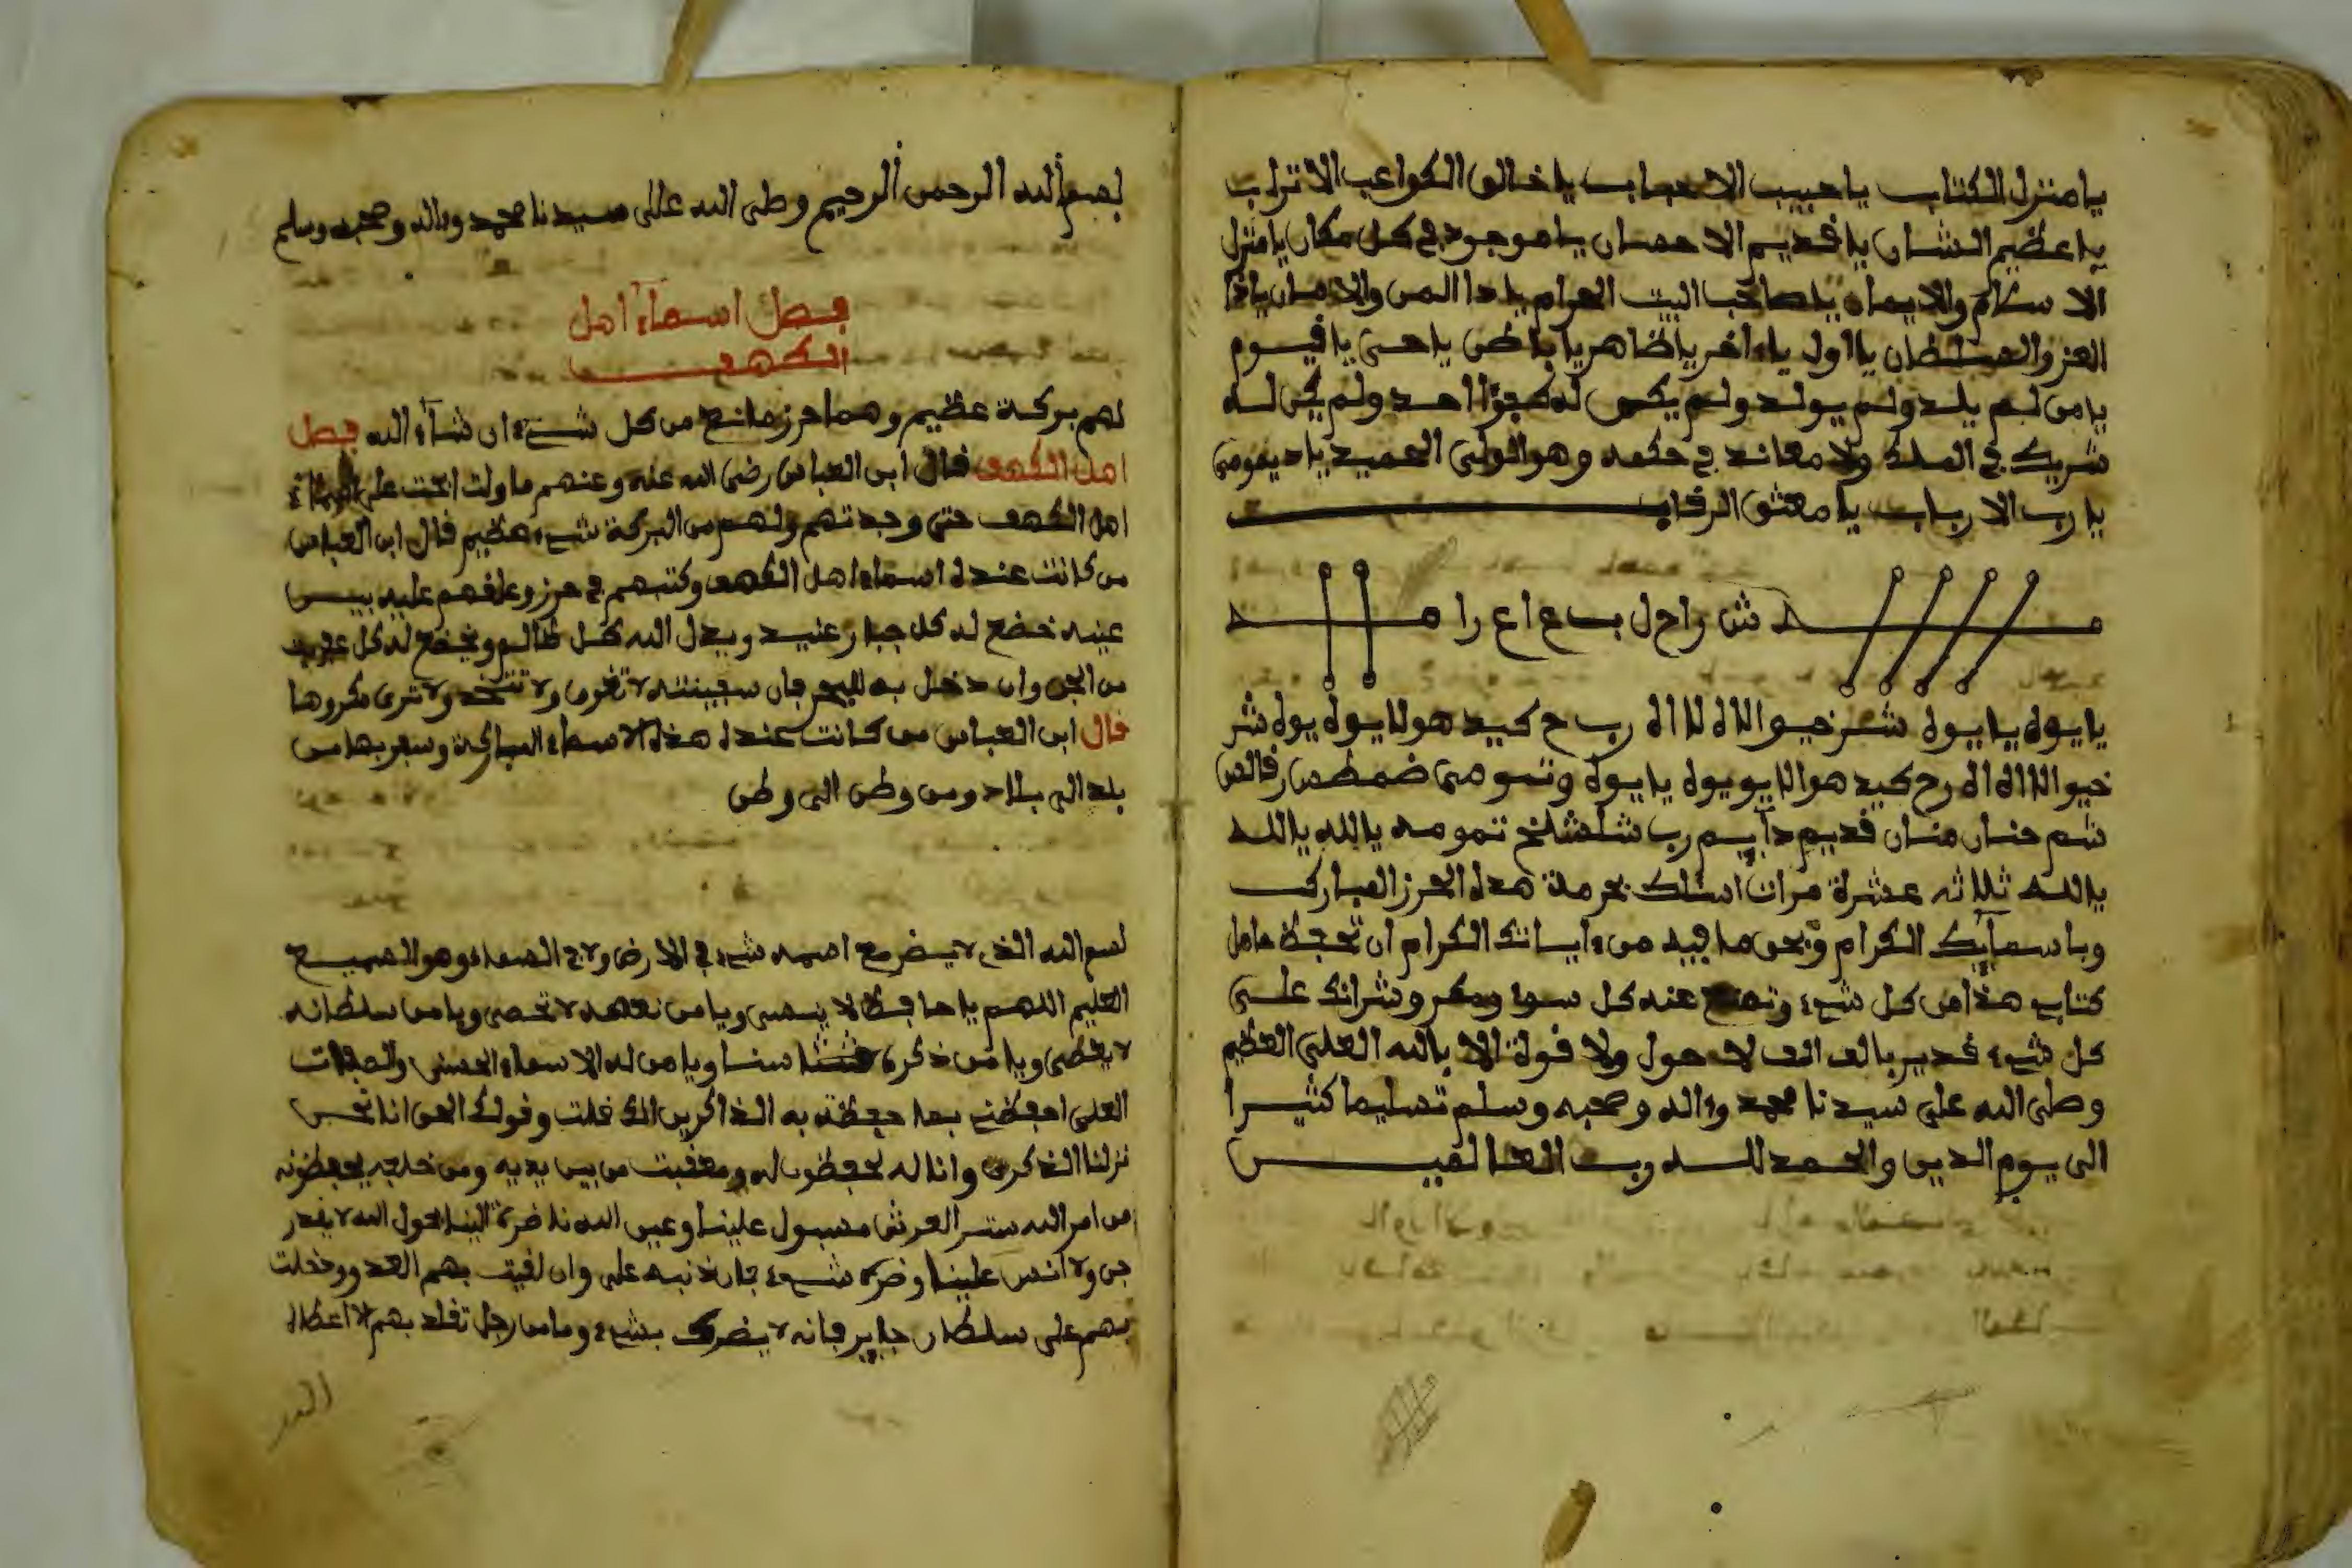 يا منزل الكتاب يا حبيب الاحباب يا خالق الكواعب الاتراب
يا عظيم الشان يا قديم الاحسان يا موجود في كل مكان يا منزل
الاسلام والايمان يا صاحب البيت الحرام يا ذا المن والاحسان يا ذا
العز والسلطان يا اول يا ءاخر يا ظاهر يا باطن يا حي يا قيوم
يا من لم يلد ولم يولد ولم يكن له كفؤا احد ولم يكن له
شريك في الملك ولا معاند في حكمه وهو الولي الحميد يا ديمومي
يا رب الارباب يا معتق الرقاب
يا يوه يا يوه
شم حنان منان قديم دايم رب شلشلخ تمومه يا الله يا الله
يا الله ثلاثه عشرة مرات اسئلك بحرمة هذه الحرز المبارك
وباسمايك الكرام وبحق ما فيه من ءاياتك الكرام ان تحفظ حامل
كتاب هذا من كل شيء وتمنع عنه كل سوء ومكر وشرانك على
كل شيء قدير بالف الف لا حول ولا قوة الا بالله العلي العظيم
وصلى الله على سيدنا محمد وءاله وصحبه وسلم تسليما كثيرا
الى يوم الدين والحمد لله رب العالمين
بسم الله الرحمن الرحيم وصلى الله على سيدنا محمد وءاله وصحبه وسلم
فصل اسماء اهل
الكهف
لهم بركة عظيم وهما حرز مانع من كل شيء ان شاء الله فصل
اهل الكهف قال ابن العباس رضي الله عنه وعنهم ما ولت ابحث على اسماء
اهل الكهف حتى وجدتهم ولهم من البركة شيء عظيم قال ابن العباس
من كانت عنده اسماء اهل الكهف وكتبهم في حرز وعلقهم عليه بين
عينه خضع له كل جبار عنيد ويذل الله كل ظالم ويخضع له كل عفريت
من الجن وان دخل به للبحر فان سفينته لا تغرق ولا ولا ترى مكروها
قال ابن العباس من كانت عنده هذه الاسماء المباركة وسفر بها من
بلد الى بلاد ومن وطن الى وطن
بسم الله الذي لا يضر مع اسمه شيء في الارض ولا في السماء وهو السميع
العليم اللهم يا حافظ لا ينسى ويا من نعمه لا تحصى ويا من سلطانه
لا يعصى ويا من ذكره سنا ويا من له الاسماء الحسنى والصفات
العلى احفظني بما حفظت به الذاكرين انك قلت وقولك الحق انا نحن
نزلنا الذكر وانا له لحفظون له ومعقبت من بين يديه ومن خلفه يحفظونه
من امر الله ستر العرش مسبول علينا وعين الله ناضرة الينا بحول الله لا يقدر
جن ولا انس علينا وان لقيت بهم العدو ودخلت
بهم على سلطان جاير فانه لا يضرك بشيء وما من رجل تقلد بهم الا اعطاه
الله